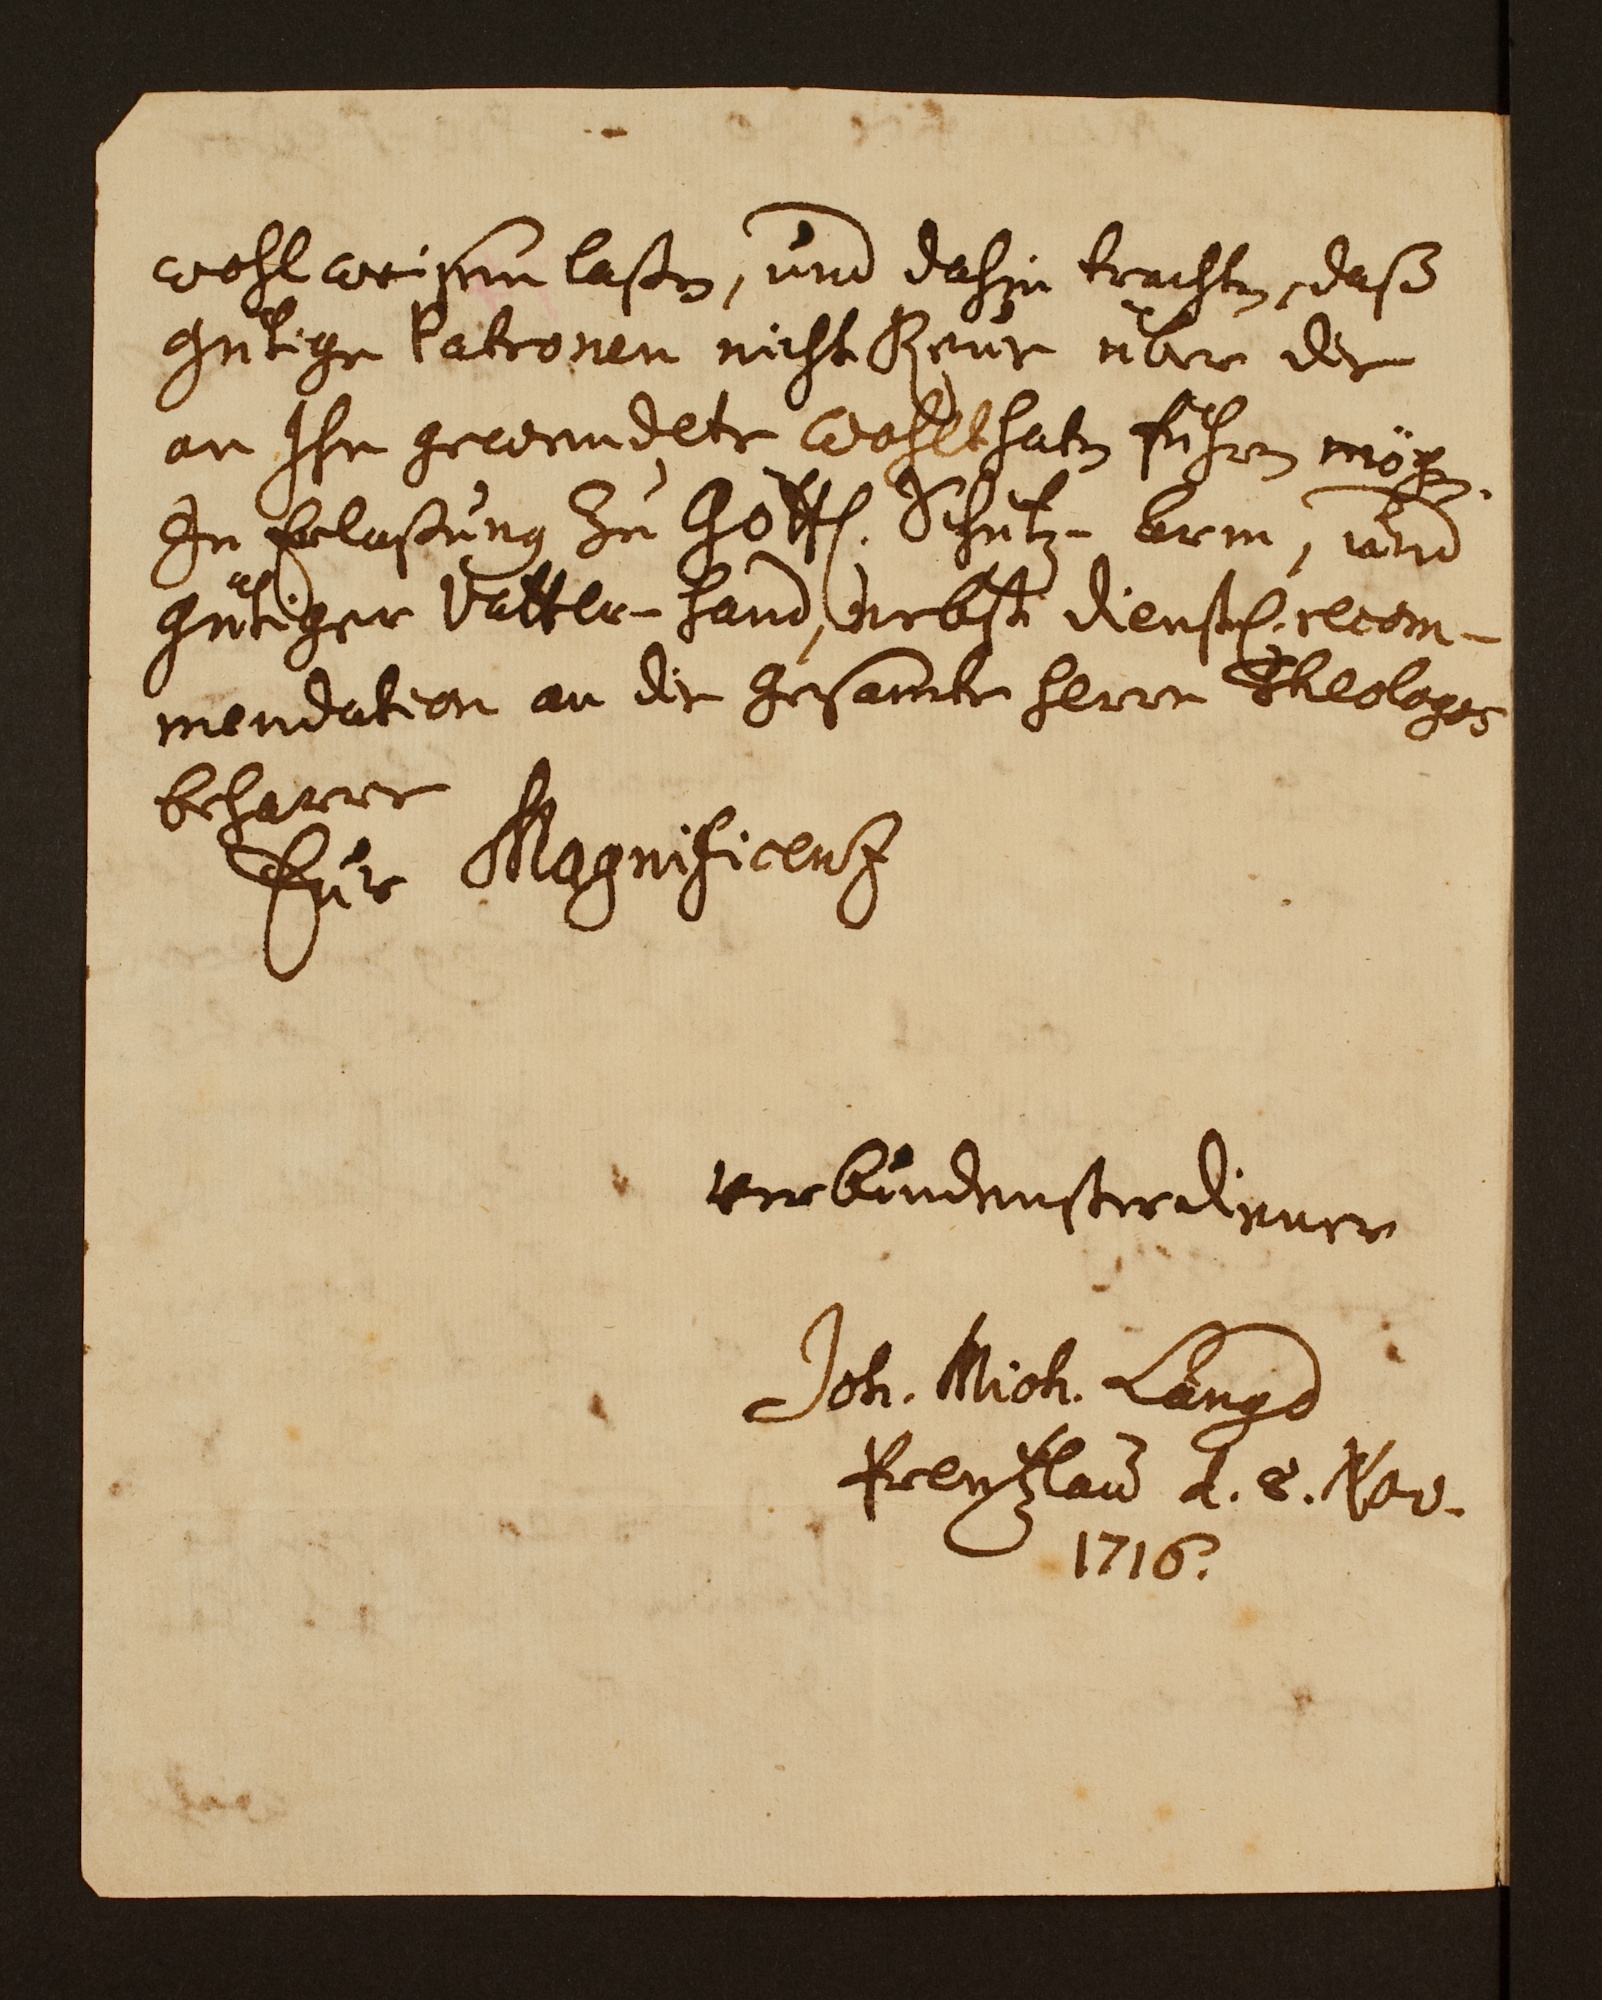 wohl weisen laßen, und dahin trachten, daß
gütige Patronen nicht Reue über die
an Ihn gewendete Wohlthaten führen mög.
In Erlaßung zu Göttl. Schutz- Arm, und
gütiger Vatter-hand, nebst dienstl. recom-
mendation an die gesamte herrn Theologos
beharre
Eur Magnificenz
verbundenster diener
Joh. Mich. Lange
Prentzlau d. 8. Nov.
1716.